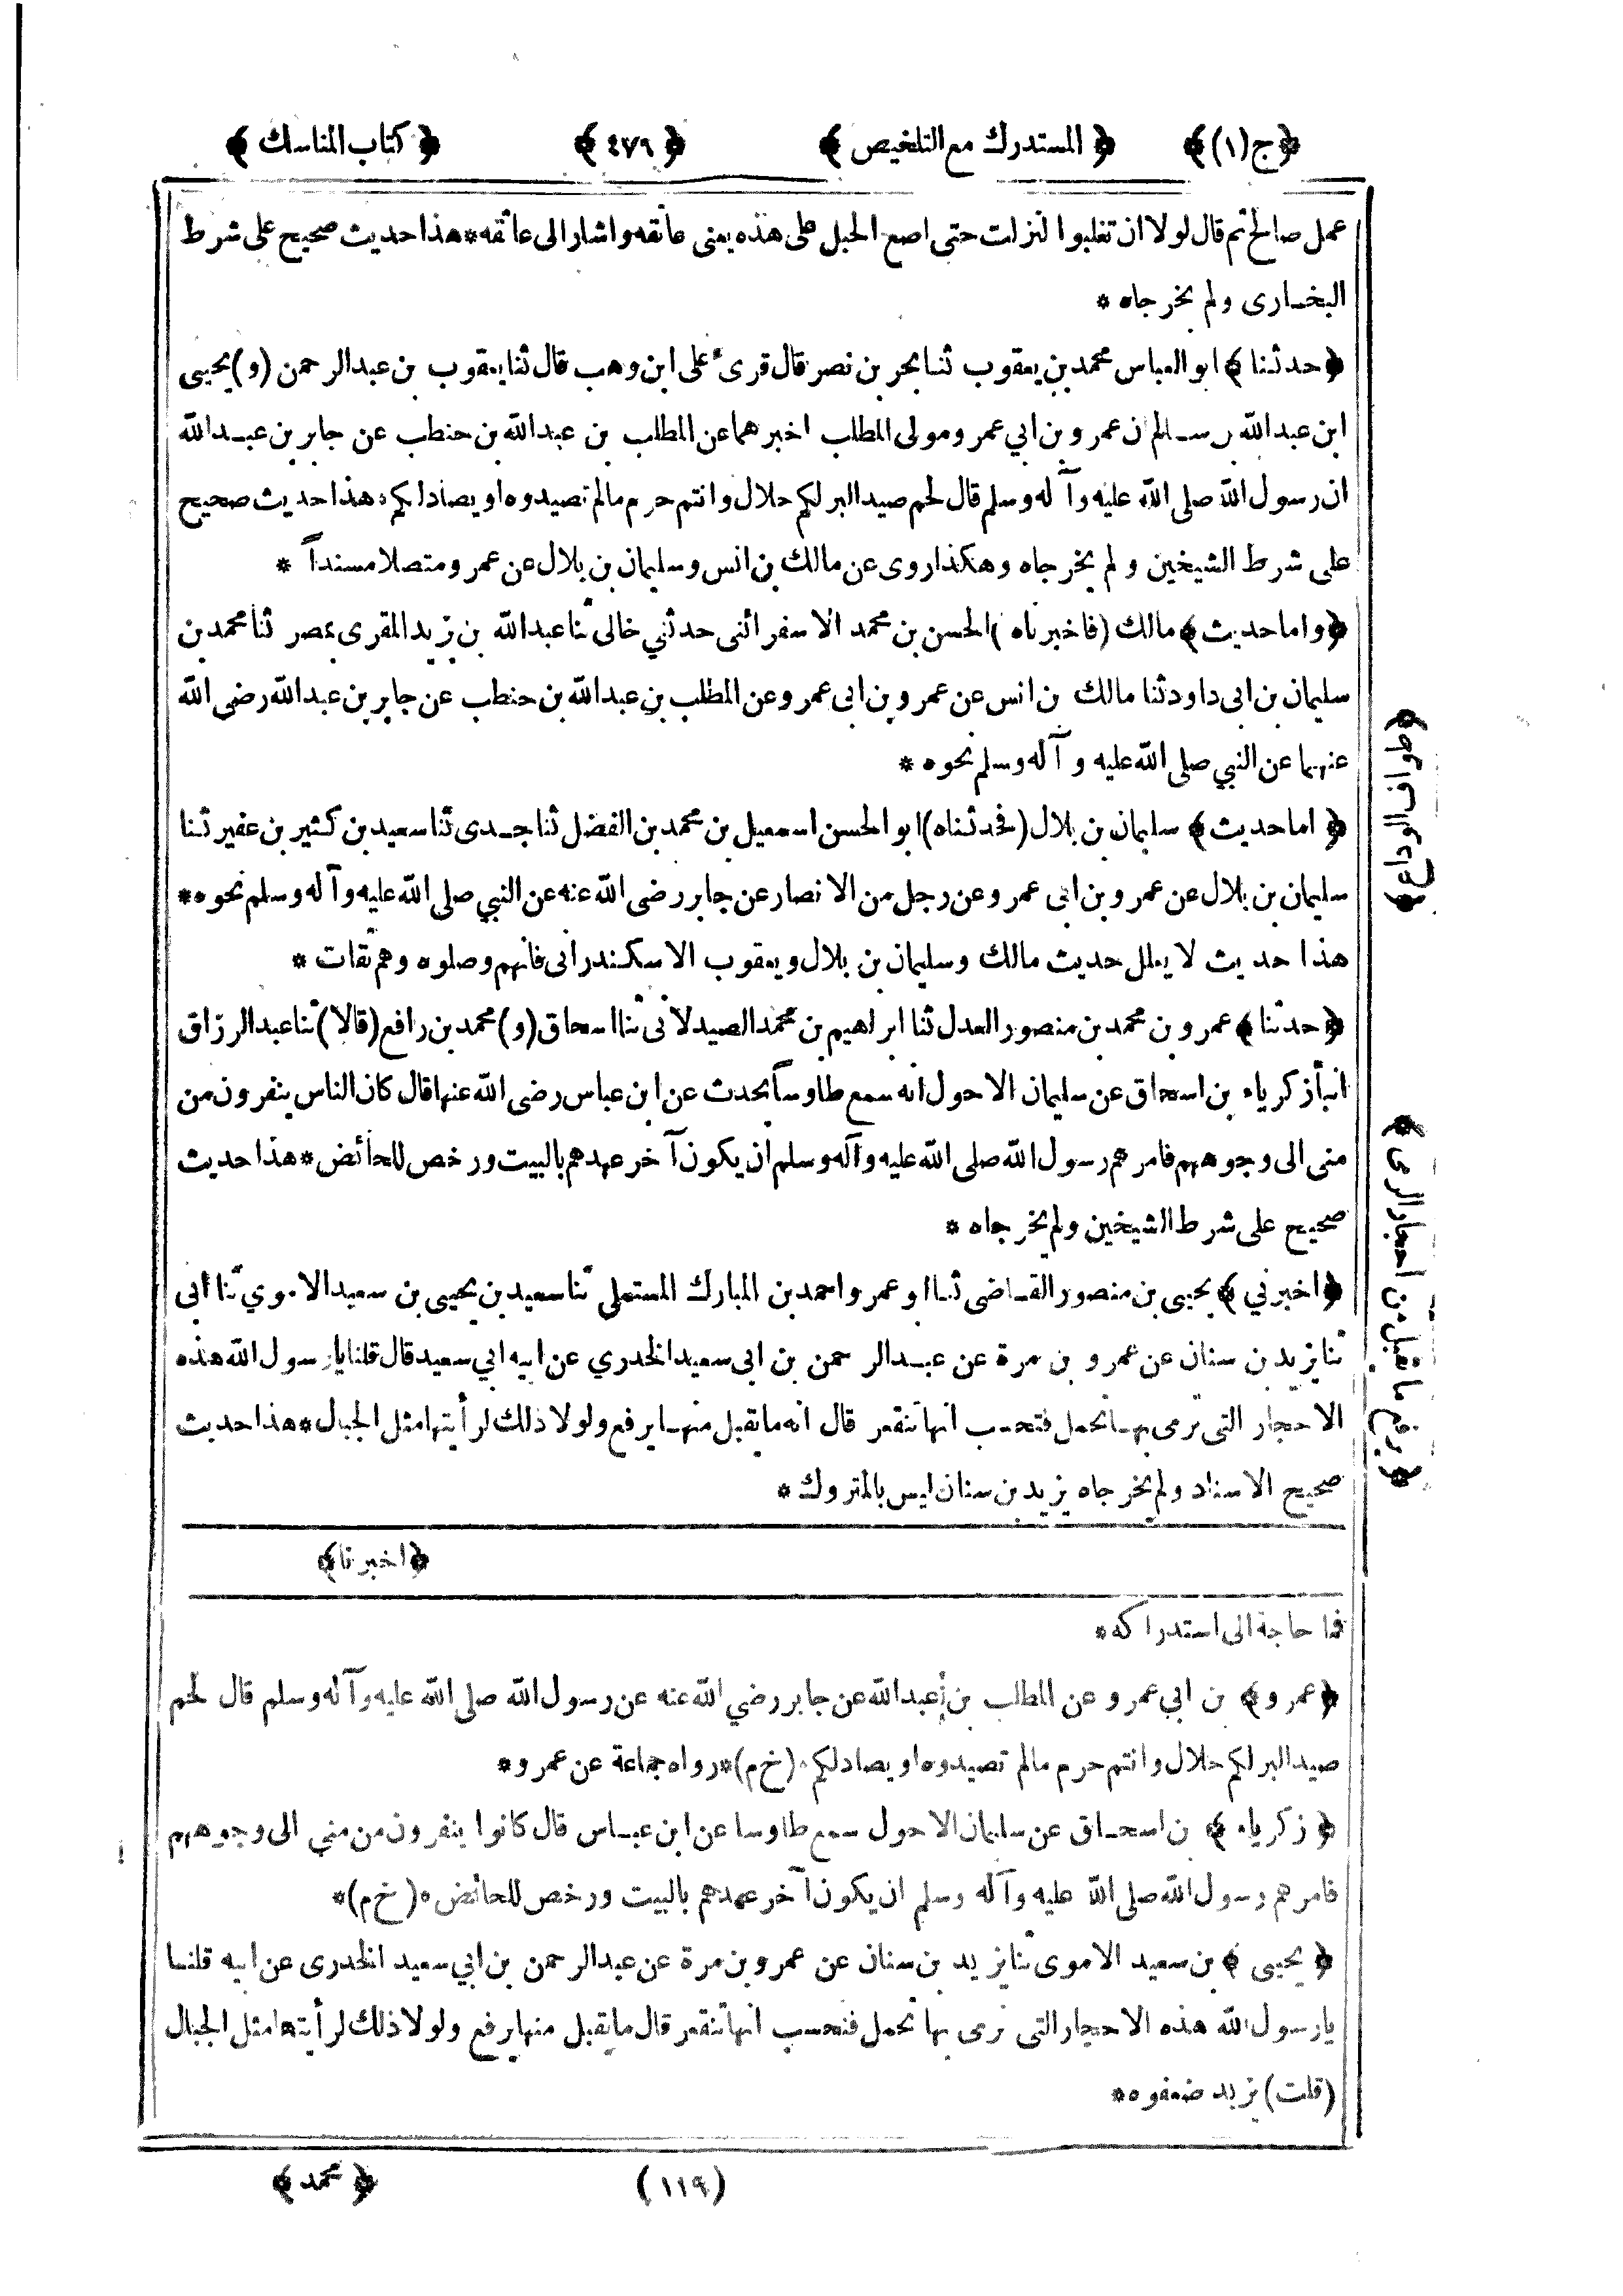 ﴿ ج (١) ﴾ ﴿ المستدرك مع التلخيص ﴾ ﴿ ٤٧٦ ﴾ ﴿ كتاب المناسك ﴾
عمل صالح ثم قال لولا ان تغلبوا لنزلت حتى اضع الحبل على هذه يعنى عاتقه واشار الى عاتقه * هذا حديث صحيح على شرط
البخارى ولم يخرجاه *
﴿ حدثنا ﴾ ابو العباس محمد بن يعقوب ثنا بحر بن نصر قال قرئ على ابن وهب قال ثنا يعقوب بن عبد الرحمن (و) يحيى
ابن عبد الله بن سالم ان عمرو بن ابي عمرو مولى المطلب اخبرهما عن المطلب بن عبد الله بن حنطب عن جابر بن عبد الله
ان رسول الله صلى الله عليه وآله وسلم قال لحم صيد البر لكم حلال وانتم حرم مالم تصيدوه او يصاد لكم * هذا حديث صحيح
على شرط الشيخين ولم يخرجاه وهكذا روى عن مالك بن انس وسليمان بن بلال عن عمرو متصلا مسنداً *
﴿ واما حديث ﴾ مالك (فاخبرناه) الحسن بن محمد الاسفرائنى حدثني خالى ثنا عبد الله بن زيد المقرى بمصر ثنا محمد بن
سليمان بن ابى داود ثنا مالك بن انس عن عمرو بن ابى عمرو عن المطلب بن عبد الله بن حنطب عن جابر بن عبد الله رضى الله
عنهما عن النبي صلى الله عليه وآله وسلم نحوه *
﴿ اما حديث ﴾ سليمان بن بلال (فحدثناه) ابو الحسن اسمعيل بن محمد بن الفضل ثنا جدى ثنا سعيد بن كثير بن عفير ثنا
سليمان بن بلال عن عمرو بن ابى عمرو عن رجل من الانصار عن جابر رضى الله عنه عن النبي صلى الله عليه وآله وسلم نحوه *
هذا حديث لا يعلل حديث مالك وسليمان بن بلال ويعقوب الاسكندرانى فانهم وصلوه وهم ثقات *
﴿ حدثنا ﴾ عمرو بن محمد بن منصور العدل ثنا ابراهيم بن محمد الصيدلانى ثنا اسحاق (و) محمد بن رافع (قالا) ثنا عبد الرزاق
انبأ زكرياء بن اسحاق عن سليمان الاحول انه سمع طاوساً يحدث عن ابن عباس رضى الله عنهما قال كان الناس ينفرون من
منى الى وجوههم فامرهم رسول الله صلى الله عليه وآله وسلم ان يكون آخر عهدهم بالبيت ورخص للحائض * هذا حديث
صحيح على شرط الشيخين ولم يخرجاه *
﴿ اخبرني ﴾ يحيى بن منصور القاضى ثنا ابو عمرو احمد بن المبارك المستملى ثنا سعيد بن يحيى بن سعيد الاموي ثنا أبى
ثنا يزيد بن سنان عن عمرو بن مرة عن عبد الرحمن بن ابى سعيد الخدري عن ابيه ابي سعيد قال قلنا يا رسول الله هذه
الاحجار التى ترمى بها تحمل فتحسب انها تنقعر قال انه ما يقبل منها يرفع ولولا ذلك لرأيتها مثل الجبال * هذا حديث
صحيح الاسناد ولم يخرجاه يزيد بن سنان ليس بالمتروك *
﴿ اخبرنا ﴾
فما حاجة الى استدراكه *
﴿ عمرو ﴾ بن ابي عمرو عن المطلب بن عبد الله عن جابر رضي الله عنه عن رسول الله صلى الله عليه وآله وسلم قال لحم
صيد البر لكم حلال وانتم حرم مالم تصيدوه او يصاد لكم * (خ م) * رواه جماعة عن عمرو *
﴿ زكرياء ﴾ بن اسحاق عن سليمان الاحول سمع طاوسا عن ابن عباس قال كانوا ينفرون من منى الى وجوههم
فامرهم رسول الله صلى الله عليه وآله وسلم ان يكون آخر عهدهم بالبيت ورخص للحائض * (خ م) *
﴿ يحيى ﴾ بن سعيد الاموى ثنا يزيد بن سنان عن عمرو بن مرة عن عبد الرحمن بن ابي سعيد الخدرى عن ابيه قلنا
يا رسول الله هذه الاحجار التى نرمى بها تحمل فنحسب انها تنقعر قال ما يقبل منها يرفع ولولا ذلك لرأيتها مثل الجبال
(قلت) يزيد ضعفوه *
﴿ محمد ﴾ (١١٩)
﴿ يرفع ما يقبل من احجار الرمى ﴾